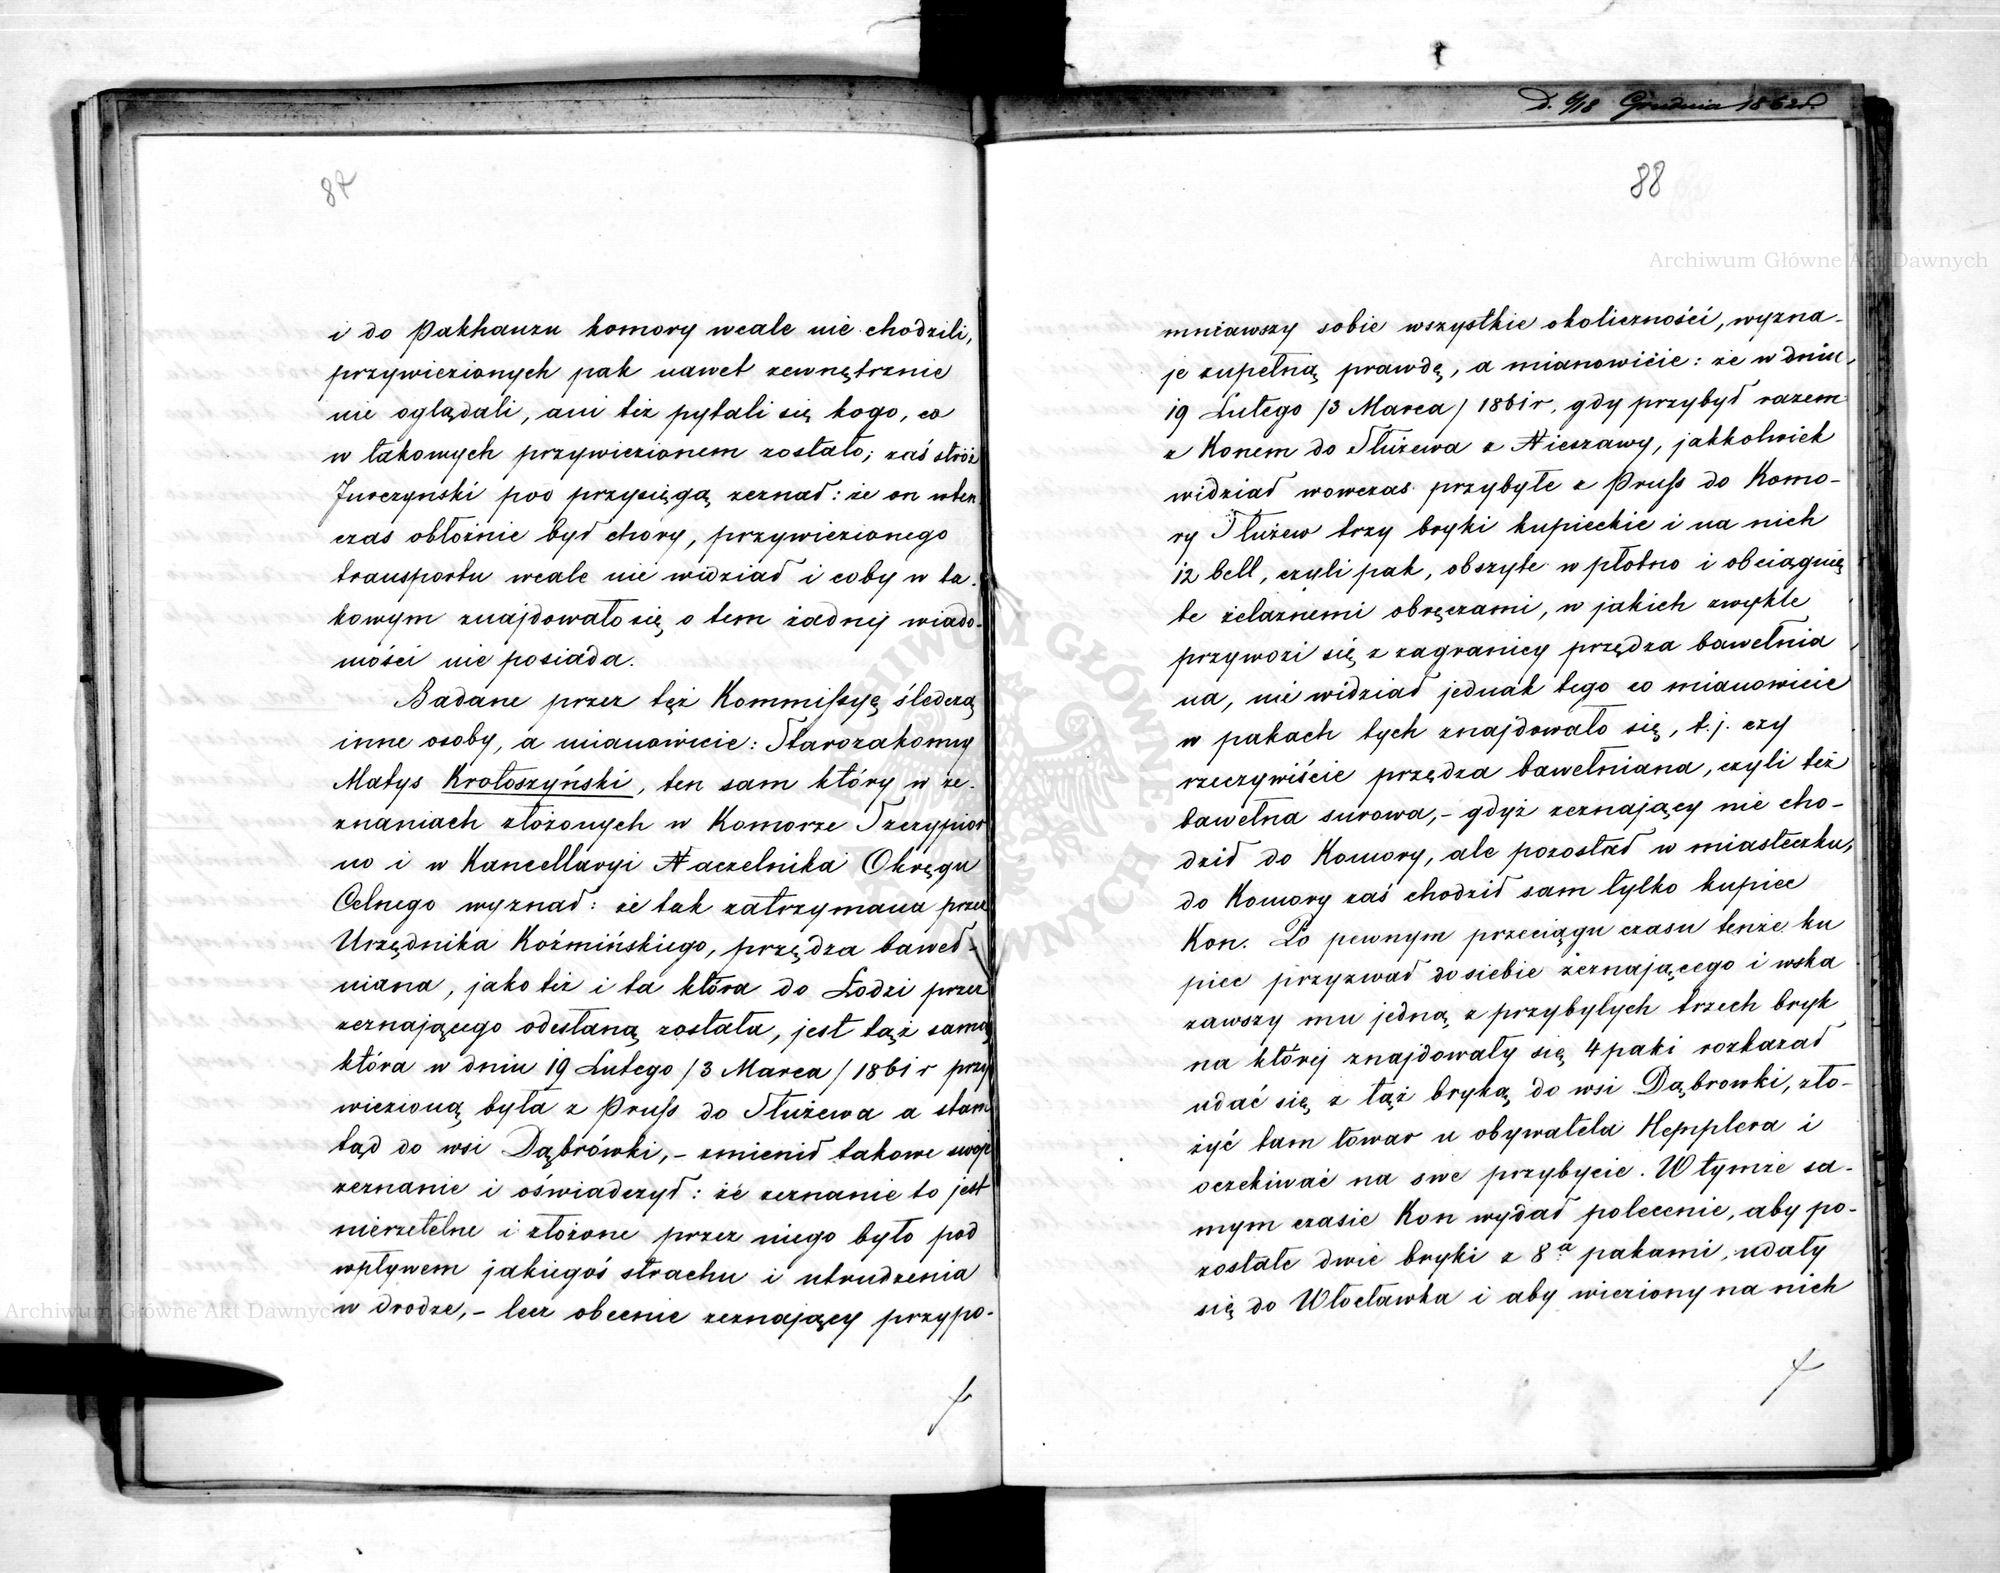 87
i do Pakhauzu komory wcale nie chodzili,
przywiezionych pak nawet zewnętrznie
nie oglądali, ani też pytali się kogo, co
w takowych przywiezionem zostało; zaś stróż
Jurczynski pod przysięgą zeznał: że on wten
czas obłożnie był chory, przywiezionego
transportu wcale nie widział i coby w ta-
kowym znajdowało się o tem żadnej wiado-
mości nie posiada.
Badane przez też Kommissyę śledczą
inne osoby, a mianowicie: Starozakonny
Matys Krotoszyński, ten sam który w ze-
znaniach złożonych w Komorze Szczypior
no i w Kancellaryi Naczelnika Okręgu
Celnego wyznał: że tak zatrzymana przez
Urzędnika Koźmińskiego, przędza baweł-
niana, jako też i ta która do Łodzi przez
zeznającego odesłaną została, jest tąż samą
która w dniu 19 Lutego /3 Marca/ 1861 r przy
wiezioną była z Pruss do Służewa a stam
tąd do wsi Dąbrówki, - zmienił takowe swoje
zeznanie i oświadczył: że zeznanie to jest
nierzetelne i złożone przez niego było pod
wpływem jakiegoś strachu i utrudzenia
w drodze, - lecz obecnie zeznający przypo-
D. 6/18 Grudnia 1862 r.
88
mniawszy sobie wszystkie okoliczności, wyzna-
je zupełną prawdę, a mianowicie: że w dniu
19 Lutego /3 Marca/ 1861 r. gdy przybył razem
z Konem do Służewa z Nieszawy, jakkolwiek
widział wowczas przybyłe z Pruss do Komo-
ry Służew trzy bryki kupieckie i na nich
12 bell, czyli pak, obszyte w płotno i obciągnię
te żelaznemi obręczami, w jakich zwykle
przywozi się z zagranicy przędza bawełnia
na, nie widział jednak tego co mianowicie
w pakach tych znajdowało się, t. j. czy
rzeczywiście przędza bawełniana, czyli też
bawełna surowa, - gdyż zeznający nie cho-
dził do Komory, ale pozostał w miasteczku,
do Komory zaś chodził sam tylko kupiec
Kon. Po pewnym przeciągu czasu tenże ku
piec przyzwał do siebie zeznającego i wska
zawszy mu jedną z przybyłych trzech bryk
na której znajdowały się 4 paki rozkazał
udać się z tąż bryką do wsi Dąbrowki, zło-
żyć tam towar u obywatela Hepplera i
oczekiwać na swe przybycie. W tymże sa-
mym czasie Kon wydał polecenie, aby po-
zostałe dwie bryki z 8ª pakami, udały
się do Włocławka i aby wieziony na nich
Archiwum Główne Akt Dawnych
Archiwum Główne Akt Dawnych